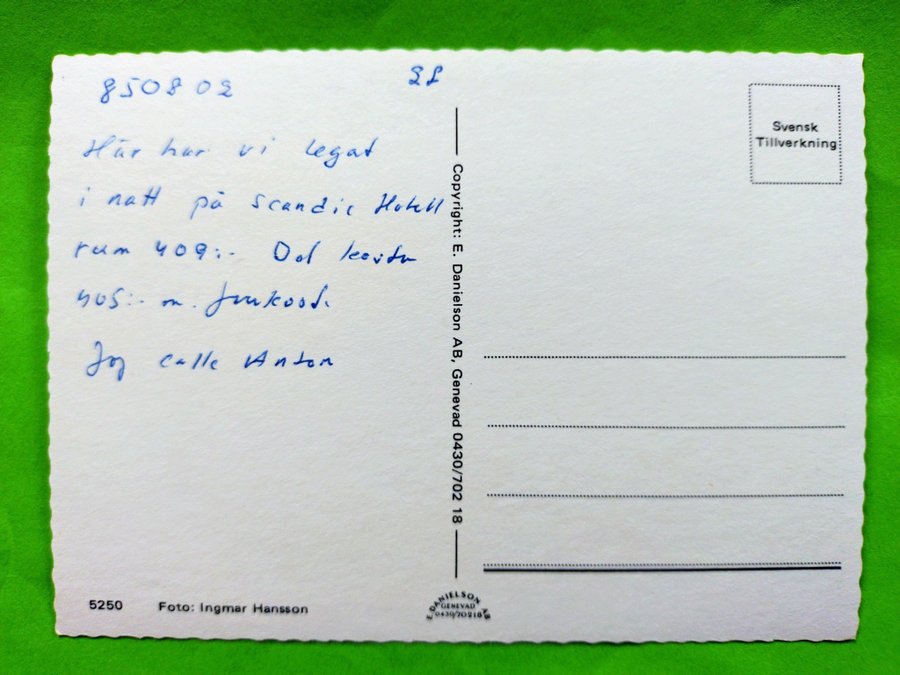 850802
Här har vi legat
i natt på Scandic Hotell
rum 409:- Det kosta
405:- m. frukost.
Jag calle Anton
Svensk
Tillverkning
Copyright: E. Danielson AB, Genevad 0430/702 18
5250 Foto: Ingmar Hansson
E. DANIELSON AB
GENEVAD
0430/70218